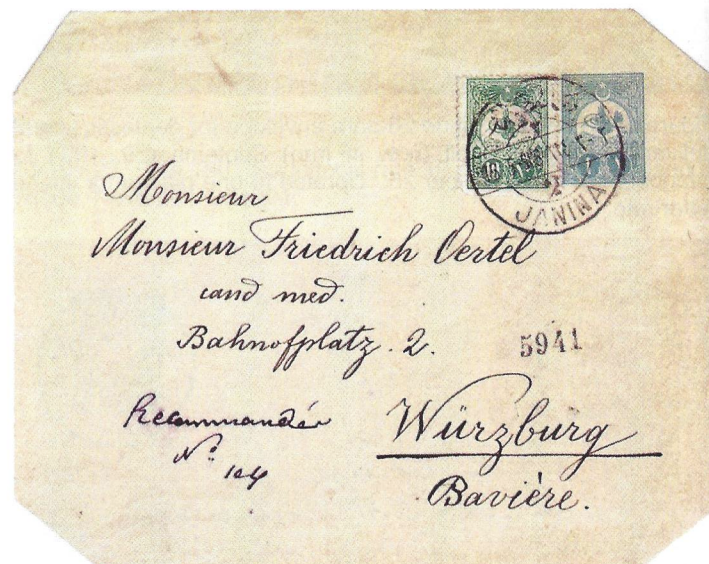 JANINA
Monsieur
Monsieur Friedrich Oertel
cand med.
Bahnofplatz. 2.
5941
Recommandée
No 104
Würzburg
Bavière.